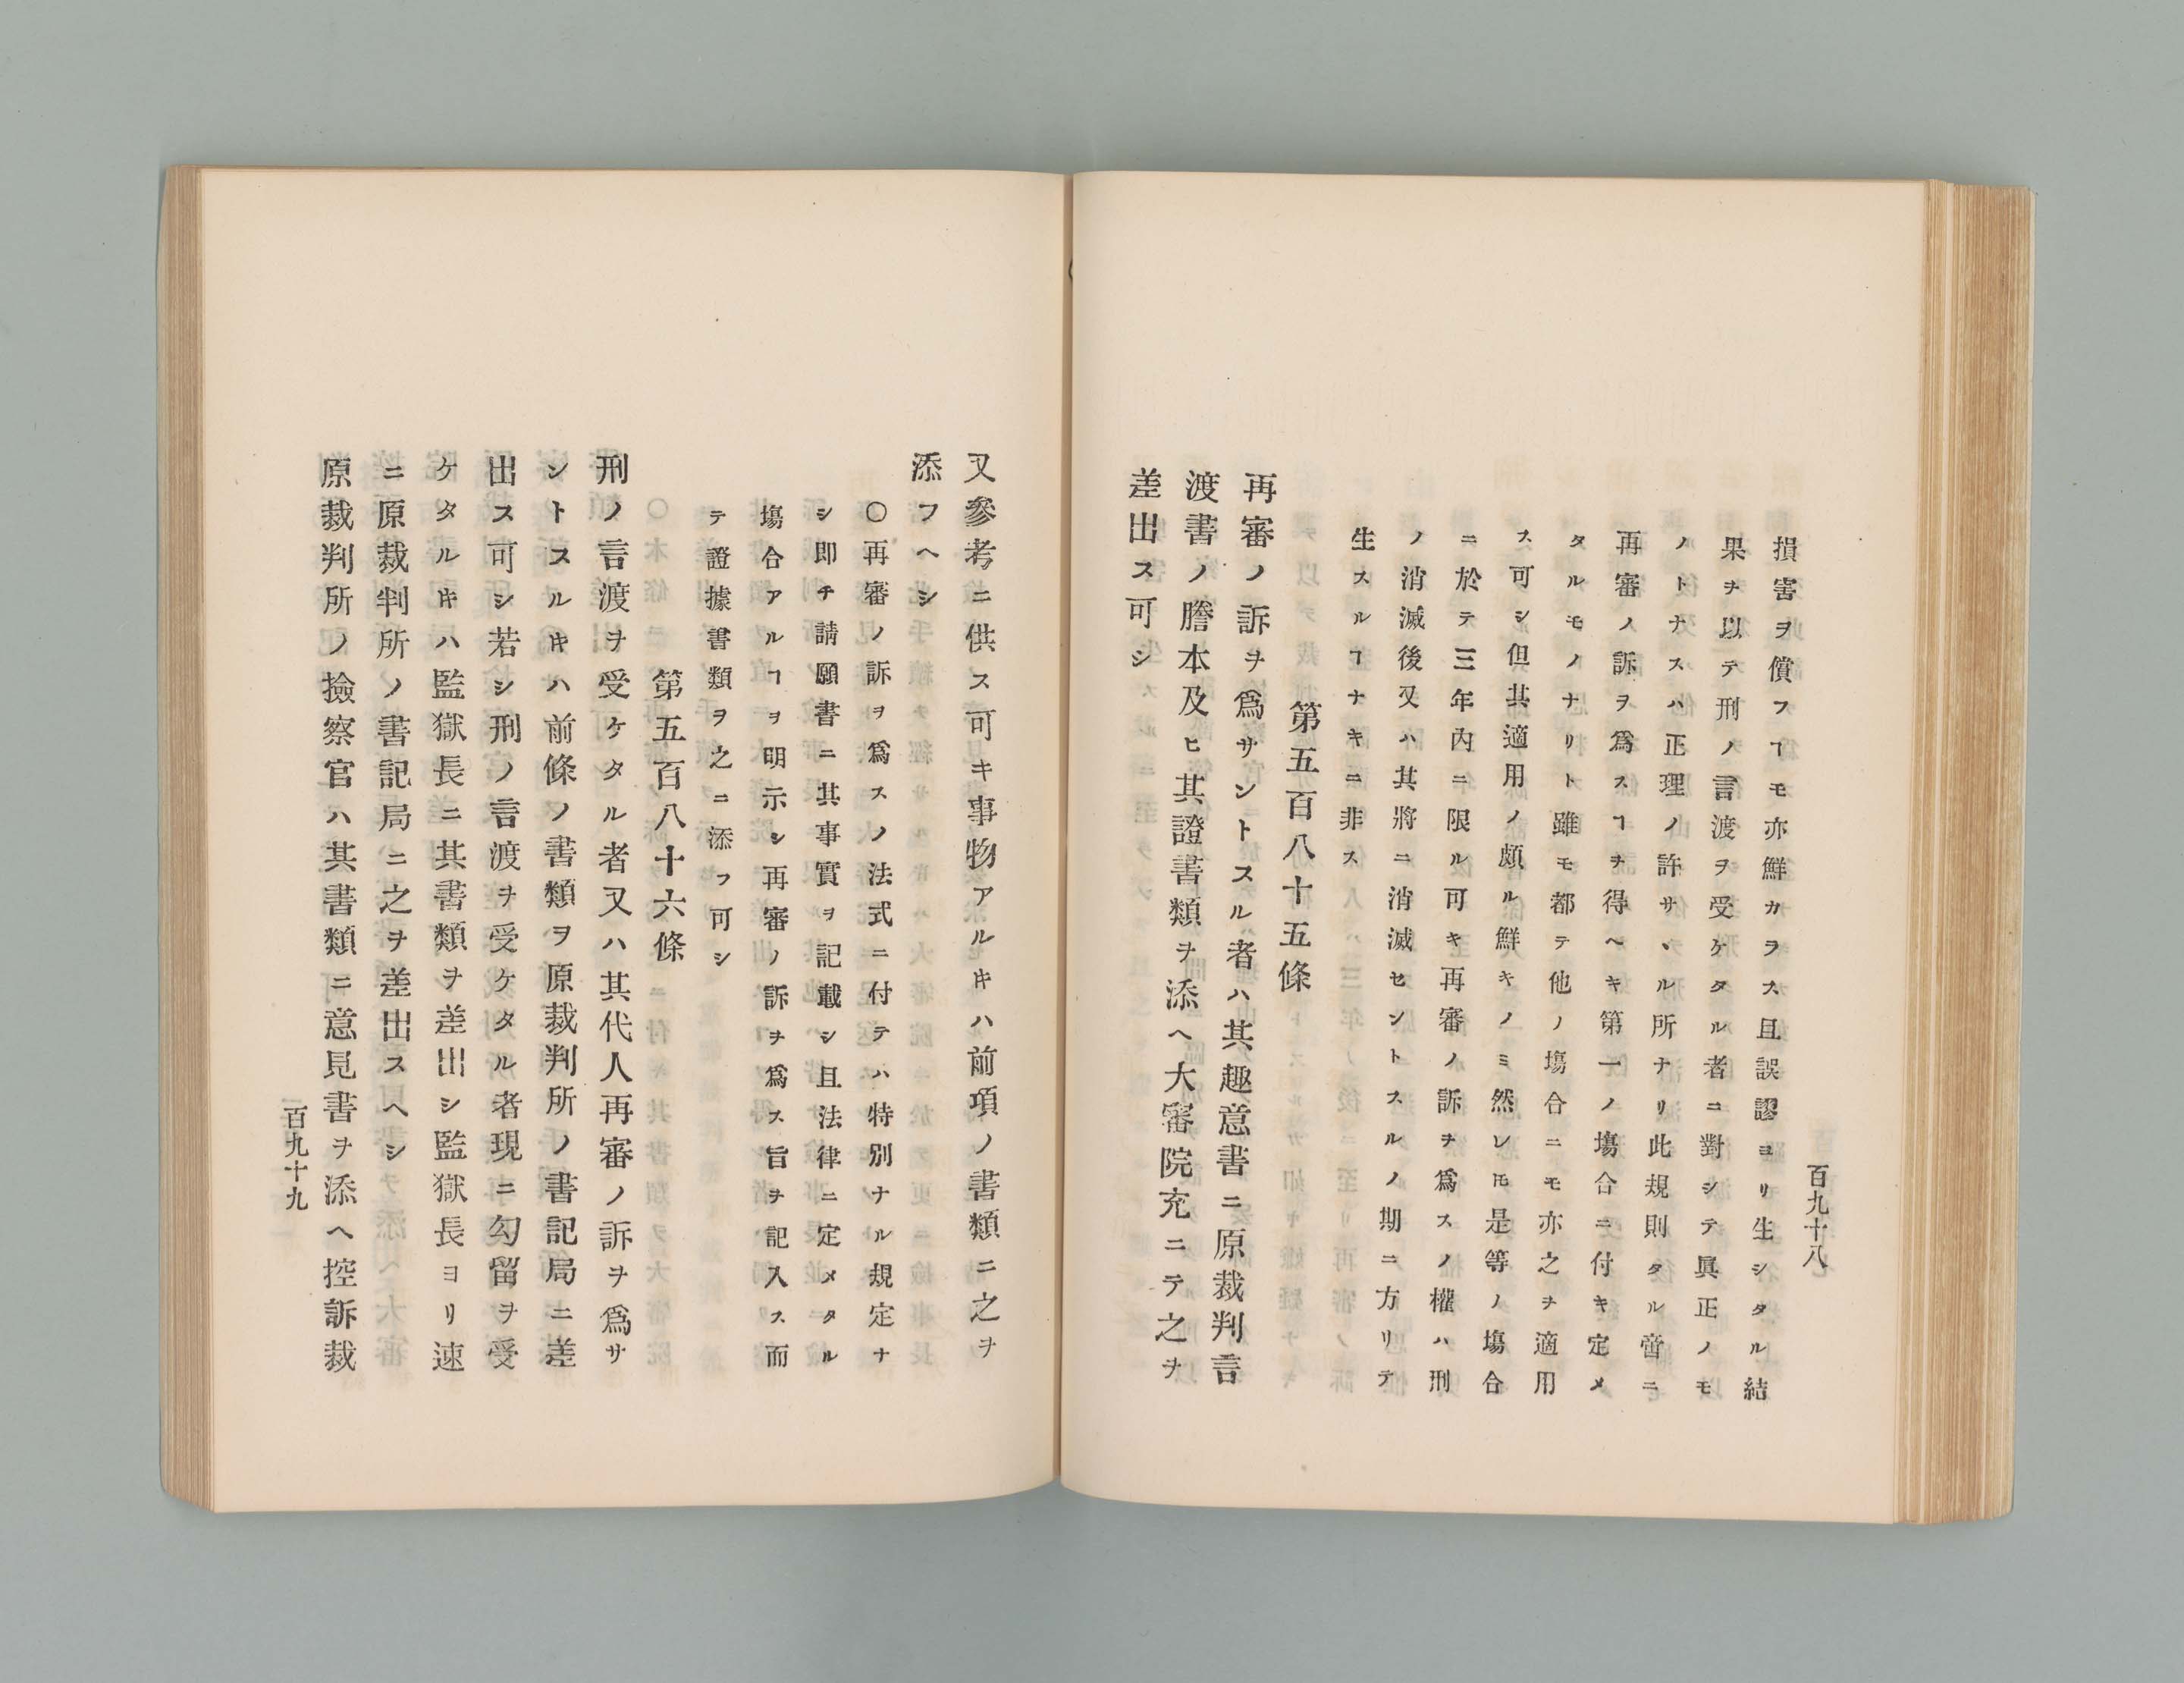 百九十八
損害ヲ償フヿモ亦鮮カラス且誤謬ヨリ生シタル結
果ヲ以テ刑ノ言渡ヲ受ケタル者ニ對シテ眞正ノモ
ノトナスハ正理ノ許サヽル所ナリ此規則タル啻ニ
再審ノ訴ヲ爲スヿヲ得ヘキ第一ノ塲合ニ付キ定メ
タルモノナリト雖モ都テ他ノ塲合ニモ亦之ヲ適用
ス可シ但其適用ノ頗ル鮮キノミ然レ𪜈是等ノ塲合
ニ於テ三年內ニ限ル可キ再審ノ訴ヲ爲スノ權ハ刑
ノ消滅後又ハ其將ニ消滅セントスルノ期ニ方リテ
生スルヿナキニ非ス
第五百八十五條
再審ノ訴ヲ爲サントスル者ハ其趣意書ニ原裁判言
渡書ノ謄本及ヒ其證書類ヲ添ヘ大審院充ニテ之ヲ
差出ス可シ
又參考ニ供ス可キ事物アルキハ前項ノ書類ニ之ヲ
添フヘシ
〇再審ノ訴ヲ爲スノ法式ニ付テハ特別ナル規定ナ
シ即チ請願書ニ其事實ヲ記載シ且法律ニ定メタル
塲合アルヿヲ明示シ再審ノ訴ヲ爲ス旨ヲ記入ス而
テ證據書類ヲ之ニ添フ可シ
第五百八十六條
刑ノ言渡ヲ受ケタル者又ハ其代人再審ノ訴ヲ爲サ
ントスルキハ前條ノ書類ヲ原裁判所ノ書記局ニ差
出ス可シ若シ刑ノ言渡ヲ受ケタル者現ニ勾留ヲ受
ケタルキハ監獄長ニ其書類ヲ差出シ監獄長ヨリ速
ニ原裁判所ノ書記局ニ之ヲ差出スヘシ
原裁判所ノ撿察官ハ其書類ニ意見書ヲ添ヘ控訴裁
百九十九